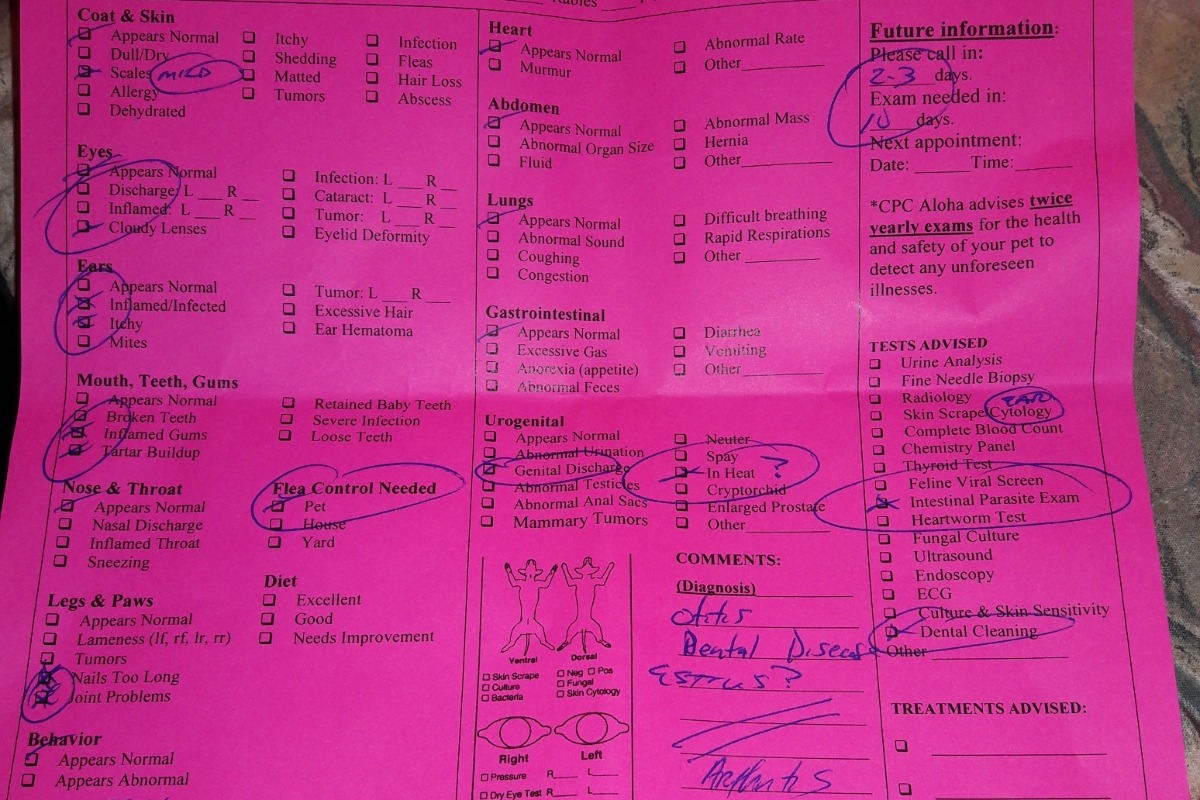 Rabies
Coat & Skin
Appears Normal
Dull/Dry
Scales MILD
Allergy
Dehydrated
Itchy
Shedding
Matted
Tumors
Infection
Fleas
Hair Loss
Abscess
Eyes
Appears Normal
Discharge: L ___ R ___
Inflamed: L ___ R ___
Cloudy Lenses
Infection: L ___ R ___
Cataract: L ___ R ___
Tumor: L ___ R ___
Eyelid Deformity
Ears
Appears Normal
Inflamed/Infected
Itchy
Mites
Tumor: L ___ R ___
Excessive Hair
Ear Hematoma
Mouth, Teeth, Gums
Appears Normal
Broken Teeth
Inflamed Gums
Tartar Buildup
Retained Baby Teeth
Severe Infection
Loose Teeth
Nose & Throat
Appears Normal
Nasal Discharge
Inflamed Throat
Sneezing
Flea Control Needed
Pet
House
Yard
Legs & Paws
Appears Normal
Lameness (lf, rf, lr, rr)
Tumors
Nails Too Long
Joint Problems
Diet
Excellent
Good
Needs Improvement
Behavior
Appears Normal
Appears Abnormal
Heart
Appears Normal
Murmur
Abnormal Rate
Other
Abdomen
Appears Normal
Abnormal Organ Size
Fluid
Abnormal Mass
Hernia
Other
Lungs
Appears Normal
Abnormal Sound
Coughing
Congestion
Difficult breathing
Rapid Respirations
Other
Gastrointestinal
Appears Normal
Excessive Gas
Anorexia (appetite)
Abnormal Feces
Diarrhea
Vomiting
Other
Urogenital
Appears Normal
Abnormal Urination
Genital Discharge
Abnormal Testicles
Abnormal Anal Sacs
Mammary Tumors
Neuter
Spay
In Heat ?
Cryptorchid
Enlarged Prostate
Other
Ventral Dorsal
Skin Scrape
Culture
Bacteria
Neg Pos
Fungal
Skin Cytology
Right Left
Pressure R___ L___
Dry Eye Test R___ L___
COMMENTS:
(Diagnosis)
Otitis
Dental Disease
Estrus?
Arthritis
Future information:
Please call in:
2-3 days.
Exam needed in:
10 days.
Next appointment:
Date: ______ Time: ______
*CPC Aloha advises twice
yearly exams for the health
and safety of your pet to
detect any unforeseen
illnesses.
TESTS ADVISED
Urine Analysis
Fine Needle Biopsy
Radiology
EAR
Skin Scrape/Cytology
Complete Blood Count
Chemistry Panel
Thyroid Test
Feline Viral Screen
Intestinal Parasite Exam
Heartworm Test
Fungal Culture
Ultrasound
Endoscopy
ECG
Culture & Skin Sensitivity
Dental Cleaning
Other
TREATMENTS ADVISED: